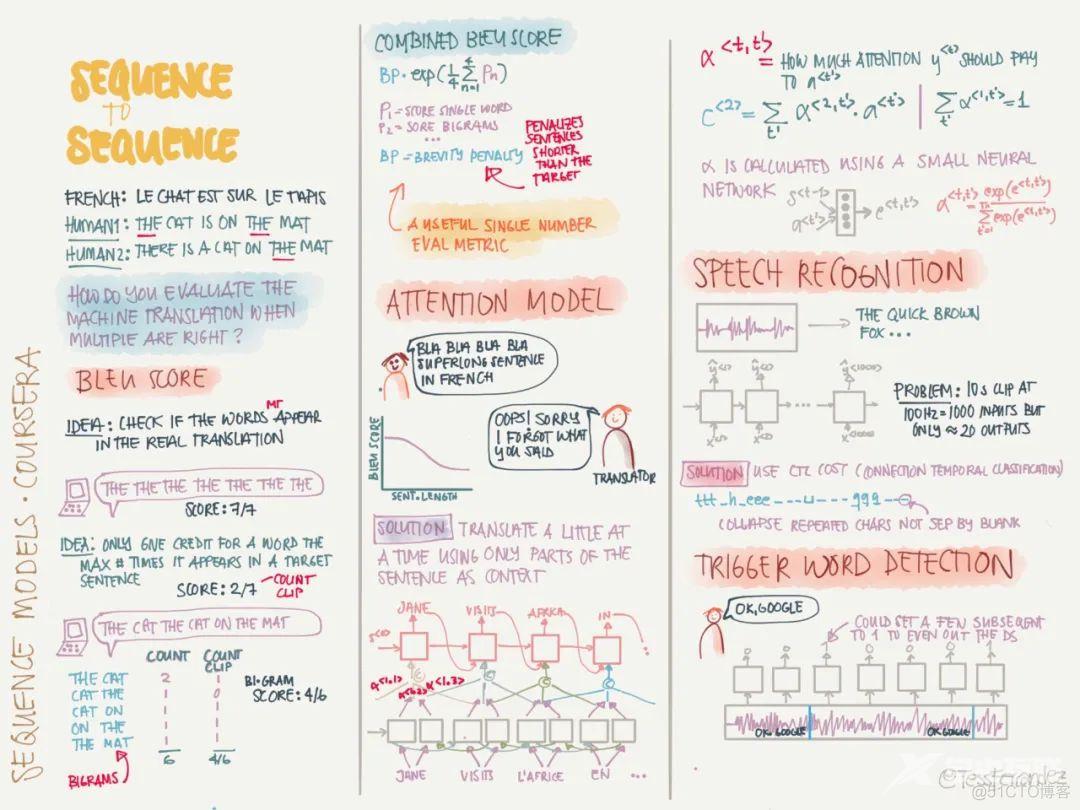 SEQUENCE MODELS · COURSERA
SEQUENCE
TO
SEQUENCE
FRENCH: LE CHAT EST SUR LE TAPIS
HUMAN1: THE CAT IS ON THE MAT
HUMAN2: THERE IS A CAT ON THE MAT
HOW DO YOU EVALUATE THE
MACHINE TRANSLATION WHEN
MULTIPLE ARE RIGHT?
BLEU SCORE
MT
IDEA: CHECK IF THE WORDS APPEAR
IN THE REAL TRANSLATION
THE THE THE THE THE THE THE
SCORE: 7/7
IDEA: ONLY GIVE CREDIT FOR A WORD THE
MAX # TIMES IT APPEARS IN A TARGET
SENTENCE
SCORE: 2/7
COUNT
CLIP
THE CAT THE CAT ON THE MAT
COUNT COUNT
CLIP
THE CAT 2 1
CAT THE 1 0
CAT ON 1 1
ON THE 1 1
THE MAT 1 1
6 4/6
BIGRAM
SCORE: 4/6
BIGRAMS
COMBINED BLEU SCORE
BP · exp(1/4 4∑n=1 Pn)
P1 = SCORE SINGLE WORD
P2 = SORE BIGRAMS
...
BP = BREVITY PENALTY
PENALIZES
SENTENCES
SHORTER
THAN THE
TARGET
A USEFUL SINGLE NUMBER
EVAL METRIC
ATTENTION MODEL
BLA BLA BLA BLA
SUPERLONG SENTENCE
IN FRENCH
OOPS! SORRY
I FORGOT WHAT
YOU SAID
TRANSLATOR
BLEU SCORE
SENT. LENGTH
SOLUTION TRANSLATE A LITTLE AT
A TIME USING ONLY PARTS OF THE
SENTENCE AS CONTEXT
JANE VISITS AFRICA IN ...
s<0>
C C C C
α<1,1> α<1,2> α<1,3>
JANE VISITS L'AFRICE EN ...
α<t,t'> = HOW MUCH ATTENTION y<t> SHOULD PAY
TO a<t'>
C<2> = ∑t' α<2,t'> · a<t'> | ∑t' α<1,t'> = 1
α IS CALCULATED USING A SMALL NEURAL
NETWORK
s<t-1>
a<t'>
e<t,t'>
α<t,t'> = exp(e<t,t'>) / Tx∑t'=1 exp(e<t,t'>)
SPEECH RECOGNITION
THE QUICK BROWN
FOX ...
ŷ<1> ŷ<2> ŷ<1000>
...
x<1> x<2> x<1000>
PROBLEM: 10s CLIP AT
100Hz = 1000 INPUTS BUT
ONLY ≈ 20 OUTPUTS
SOLUTION USE CTC COST (CONNECTION TEMPORAL CLASSIFICATION)
ttt_h_eee---⊔---qqq--
COLLAPSE REPEATED CHARS NOT SEP BY BLANK
TRIGGER WORD DETECTION
OK, GOOGLE
COULD SET A FEW SUBSEQUENT
TO 1 TO EVEN OUT THE DS
0 0 1 0 0 0 1
OK, GOOGLE OK GOOGLE
@Tessferandez
@51CTO博客